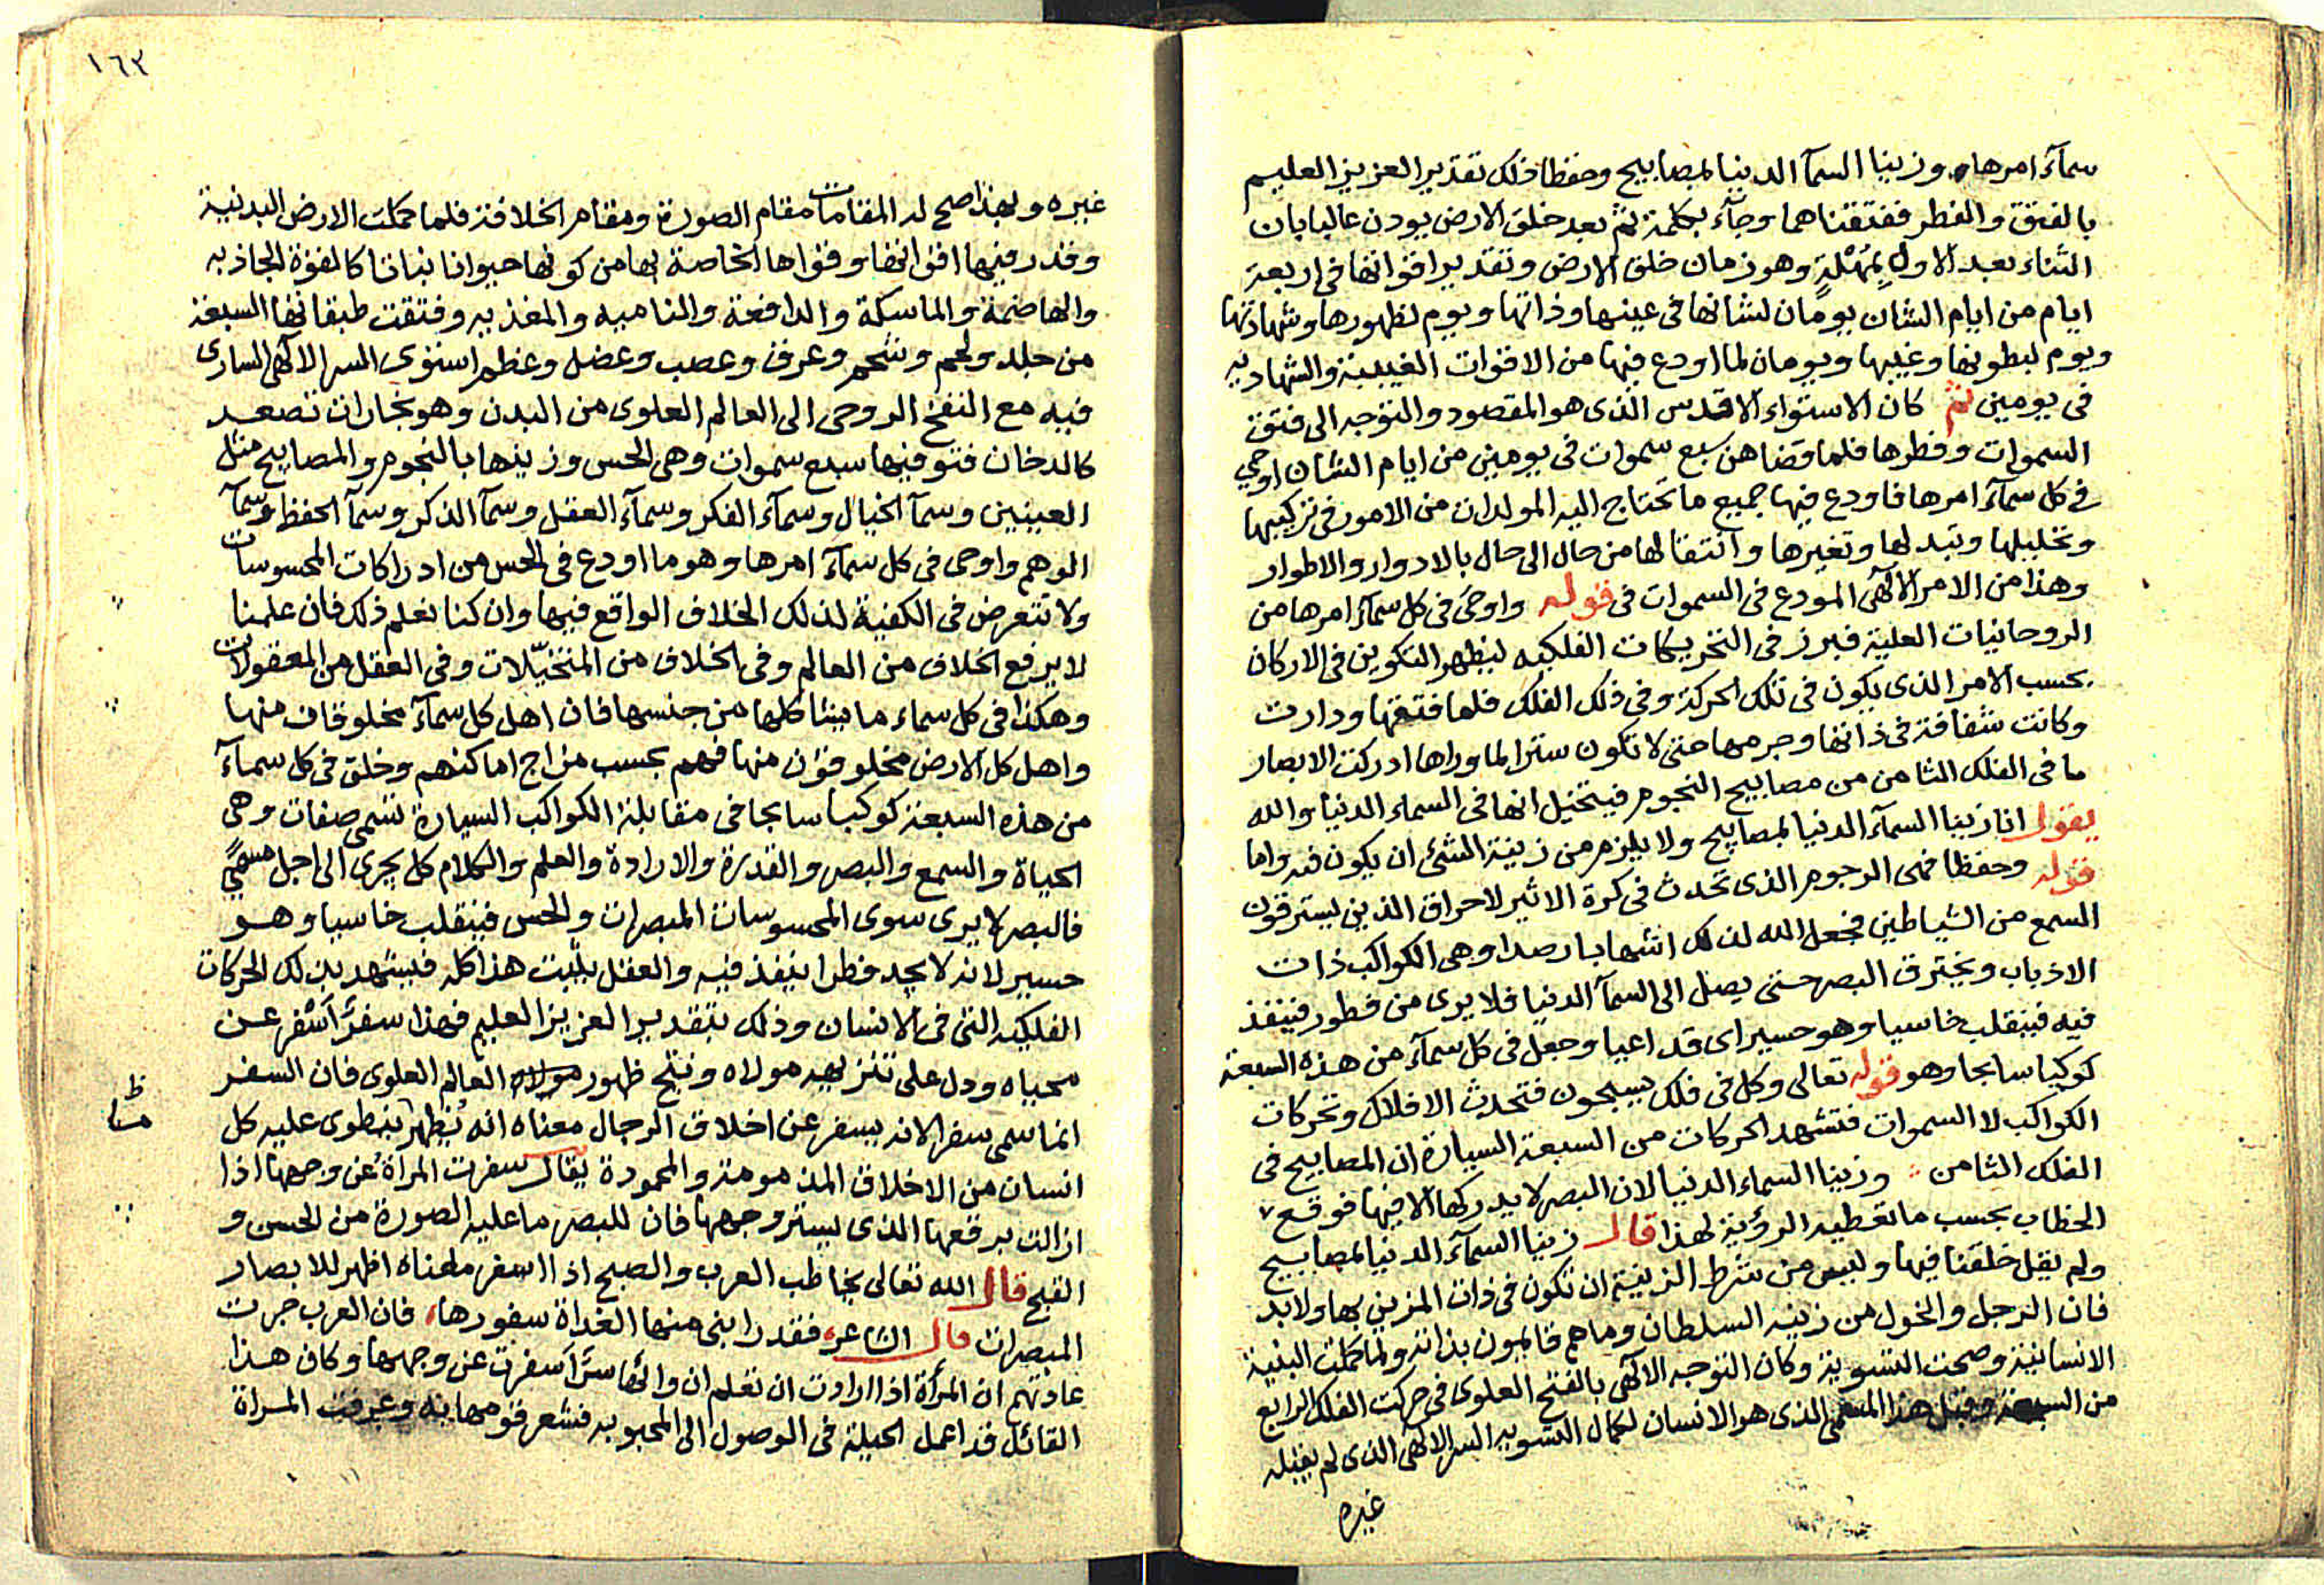 سمآء امرها وزينا السمآ الدنيا بمصابيح وحفظا ذلك تقدير العزيز العليم
بالفتق والفطر ففتقناهما وجآء بكلمة ثم بعد خلق الارض يوذن غالبا بان
الثناء بعد الاول بمهلة وهو زمان خلق الارض وتقدير اقواتها في اربعة
ايام من ايام الشان يومان لشانها في عينها وذاتها ويوم لظهورها وشهادتها
ويوم لبطونها وغيبها ويومان لما اودع فيها من الاقوات الغيبية والشهاديه
في يومين ثم كان الاستواء الاقدس الذي هو المقصود والتوجه الى فتق
السموات وفطرها فلما قضاهن سبع سموات في يومين من ايام الشان اوحي
في كل سمآء امرها فاودع فيها جميع ما تحتاج اليه المولدات من الامور في تركيبها
وتحليلها وتبدلها وتغيرها وانتقالها من حال الى حال بالادوار والاطوار
وهذا من الامر الالهي المودع في السموات في قوله واوحى في كل سمآء امرها من
الروحانيات العلية فبرز في التحريكات الفلكيه ليظهر التكوين في الاركان
بحسب الامر الذي يكون في تلك الحركة وفي ذلك الفلك فلما فتقها ودارت
وكانت شفافة في ذاتها وجرمها حتى لا تكون سترا لما وراها ادركت الابصار
ما في الفلك الثامن من مصابيح النجوم فيتخيل انها في السماء الدنيا والله
يقول انا زينا السمآء الدنيا بمصابيح ولا يلزم من زينة الشئ ان يكون فيه واما
قوله وحفظا فهى الرجوم الذى تحدث في كرة الاثير لاحراق الذين يسترقون
السمع من الشياطين فجعل الله لذلك اشهابا رصدا وهي الكواكب ذات
الاذباب ويخترق البصر حتى يصل الى السمآ الدنيا فلا يرى من فطور فينفذ
فيه فينقلب خاسيا وهو حسير اى قد اعيا وجعل في كل سمآء من هذه السبعة
كوكبا سابحا وهو قوله تعالى وكل في فلك يسبحون فتحدث الافلاك وتحركات
الكواكب لا السموات فتشهد الحركات من السبعة السيارة ان المصابيح في
الفلك الثامن وزينا السماء الدنيا لان البصر لا يدركها الا فيها فوقع
الخطاب بحسب ما تعطيه الرؤية لهذا قال زينا السمآء الدنيا بمصابيح
ولم يقل خلقنا فيها وليس من شرط الزينة ان تكون في ذات المزين بها ولا بد
فان الرجل والخول من زينه السلطان وما هم قايمون بذاته ولما كملت البنية
الانسانية وصحت التسوية وكان التوجه الالهي بالفتح العلوى في حركت الفلك الرابع
من السبعة وقبل هذا المسمى الذى هو الانسان لكمال التسويه السر الالهي الذى لم يقبله
غيره
١٦٣
غيره وبهذا صح له المقامات مقام الصورة ومقام الخلافة فلما كملت الارض البدنية
وقدر فيها اقواتها وقواها الخاصة بها من كونها حيوانا نباتا كالقوة الجاذبه
والهاضمة والماسكة والدافعة والناميه والمغذيه وفتقت طبقاتها السبعة
من جلد ولحم وشحم وعرق وعصب وعضل وعظم استوى السر الالهي السارى
فيه مع النفخ الروحى الى العالم العلوى من البدن وهو بخارات تصعد
كالدخان فتق فيها سبع سموات وهى الحس وزينها بالنجوم والمصابيح مثل
العينين وسمآ الخيال وسمآء الفكر وسمآء العقل وسمآ الذكر وسمآ الحفظ وسمآ
الوهم واوحى في كل سمآء امرها وهو ما اودع في الحس من ادراكات المحسوسات
ولا نتعرض في الكفية لذلك الخلاف الواقع فيها وان كنا نعلم ذلك فان علمنا
لا يرفع الخلاف من العالم وفي الخلاف من المتخيّلات وفي العقل من المعقولات
وهكذا في كل سماء ما يشاكلها من جنسها فان اهل كل سمآء مخلوقات منها
واهل كل الارض مخلوقون منها فهم بحسب مزاج اماكنهم وخلق في كل سمآء
من هذه السبعة كوكبا سابحا في مقابلة الكواكب السيارة تسمى صفات وهى
الحياة والسمع والبصر والقدرة والارادة والعلم والكلام كل يجرى الى اجل مسمًى
فالبصر لا يرى سوى المحسوسات المبصرات والحس فينقلب خاسيا وهو
حسير لانه لا يجد فطرا ينفذ فيه والعقل يثبت هذا كله فيشهد بذلك الحركات
الفلكيه التى في الانسان وذلك بتقدير العزيز العليم فهذا سفرٌ اَسْفر عن
محياه ودل على تنزيه مولاه ونتج ظهور العالم العلوى فان السفر
انما سمى سفرا لانه يسفر عن اخلاق الرجال معناه انه يُظهر ينطوى عليه كل
ظ
ما
انسان من الاخلاق المذمومة والمحمودة يقال سفرت المراة عن وجهها اذا
ازالت برقعها الذى يستر وجهها فان للبصر ما عليه الصورة من الحسن و
القبح قال الله تعالى يخاطب العرب والصبح اذا اسفر معناه اظهر للابصار
المبصرات قال الشاعر فقد رابنى منها الغداة سفورها، فان العرب جرت
عادتهم ان المرأة اذا ارادت ان تعلم ان ورائها سترا اسفرت عن وجهها وكان هذا
القائل قد اعمل الحيلة في الوصول الى المحبوبه فشعر قومها به وعرفت المراة